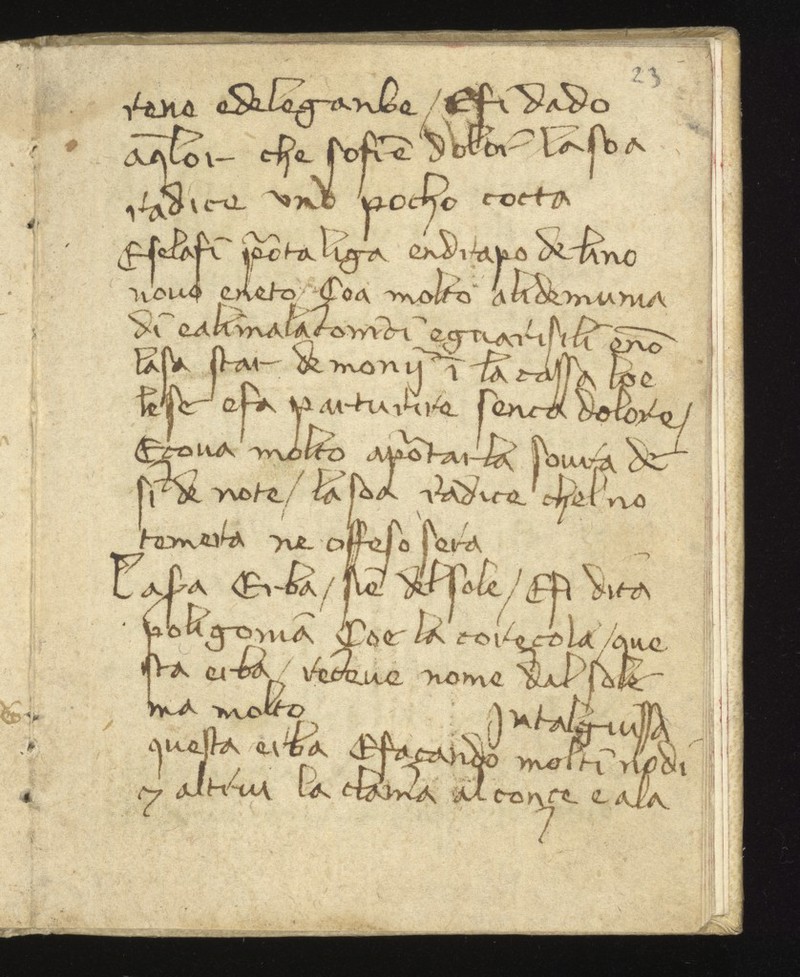 23
rene edeleganbe / Efi dado
aq̃lor che sofiē dolor lasoa
radice uno pocho cocta
Eselafi p̄ota liga endrapo de lino
novo eneto / Coa molto alidemunia
di ealimalacomci eguarisili enō
lasa star demonij ī la cassa loe
lese efa parturire senca dolore /
Ecoua molto ap̄otarla soura de
si de note / lasoa radice chel no
temera ne offeso sera
La sa Erba / siē del sole / Efi dita
poligoniā Coe la corecola / que
sta erba / receue nome dal sole
ma molto Jntalguissa
questa erba Efacando molti nodi
ꝫ altrui la clama alconçe e ala